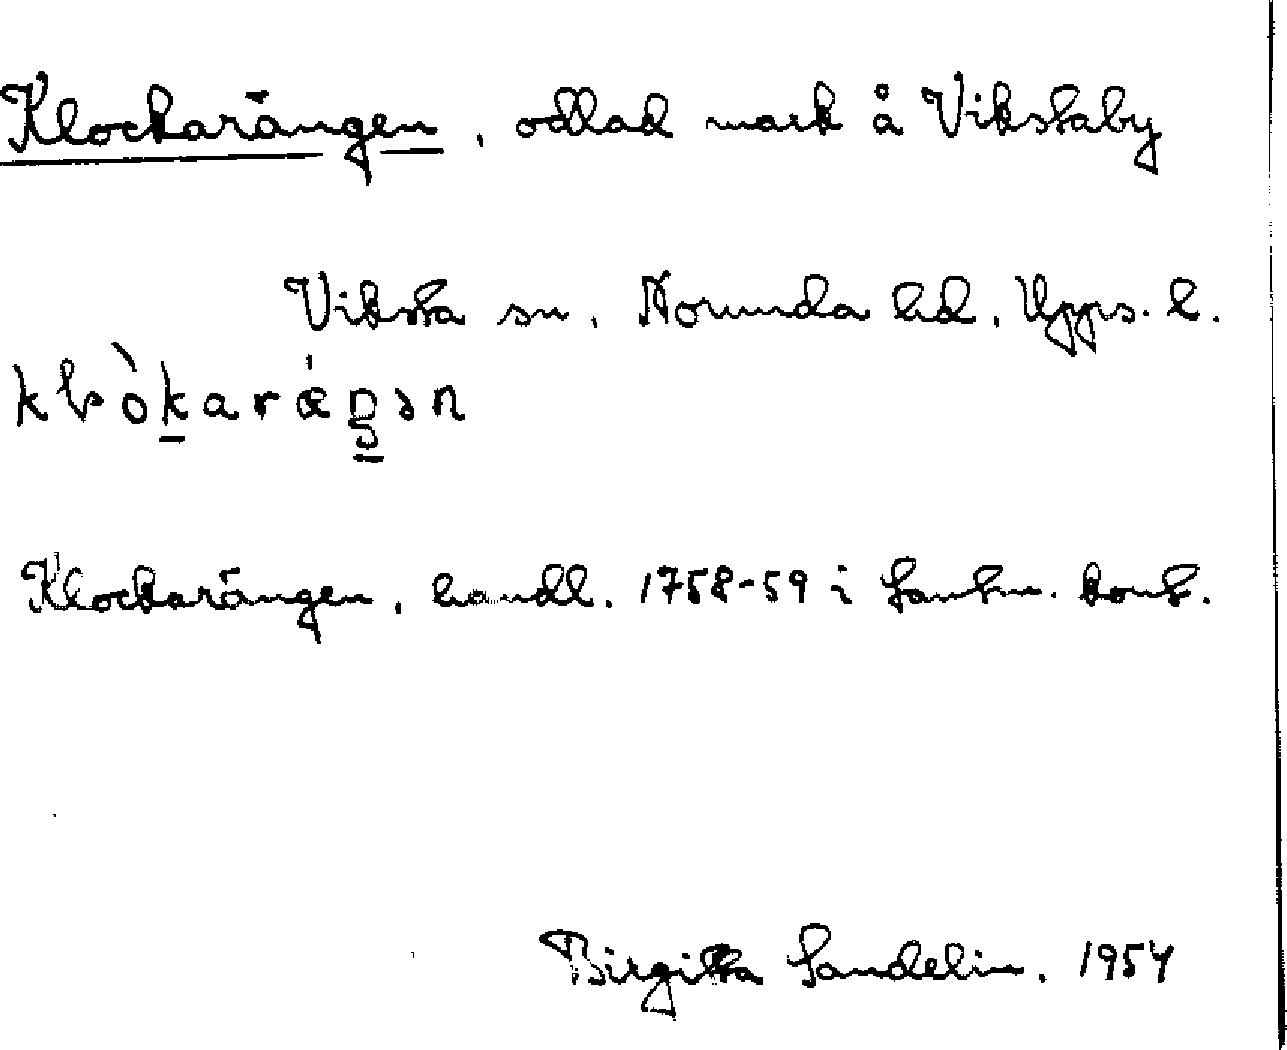 Klockarängen, odlad mark å Vikstaby
Viksta sn, Norunda hd, Upps. l.
Klockarängen, handl. 1758-59 i Lantm. kont.
Birgitta Sandelin. 1954